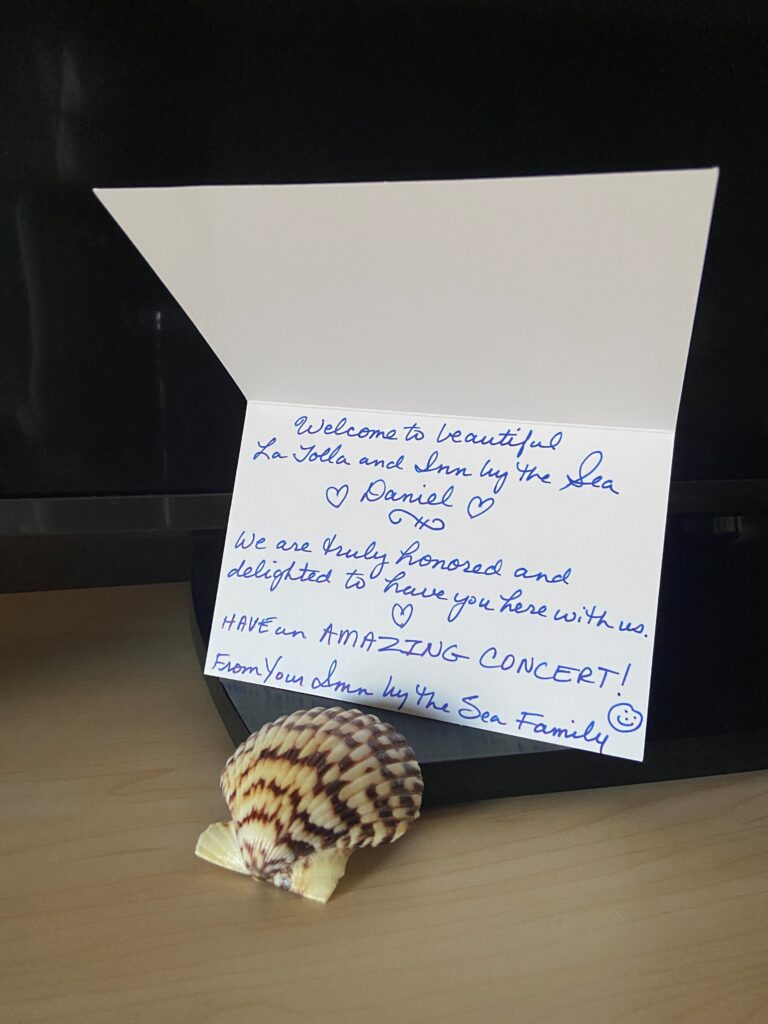 Welcome to beautiful
La Jolla and Inn by the Sea
♡ Daniel ♡
We are truly honored and
delighted to have you here with us.
♡
HAVE an AMAZING CONCERT!
From Your Inn by the Sea Family ☺